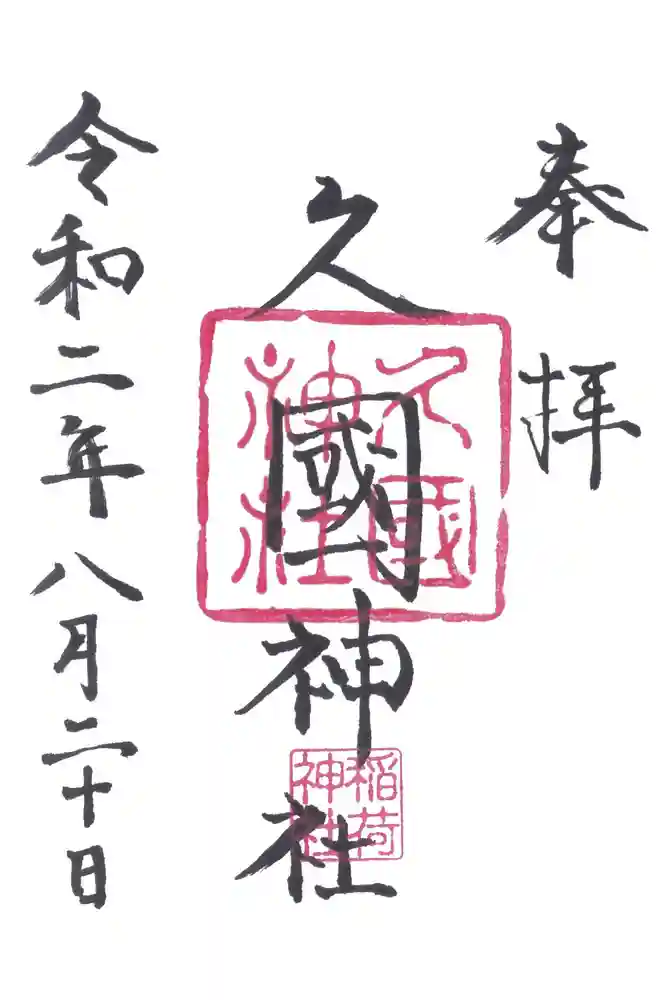 奉拝
久國神社
久國
神社
稲荷
神社
令和二年八月二十日